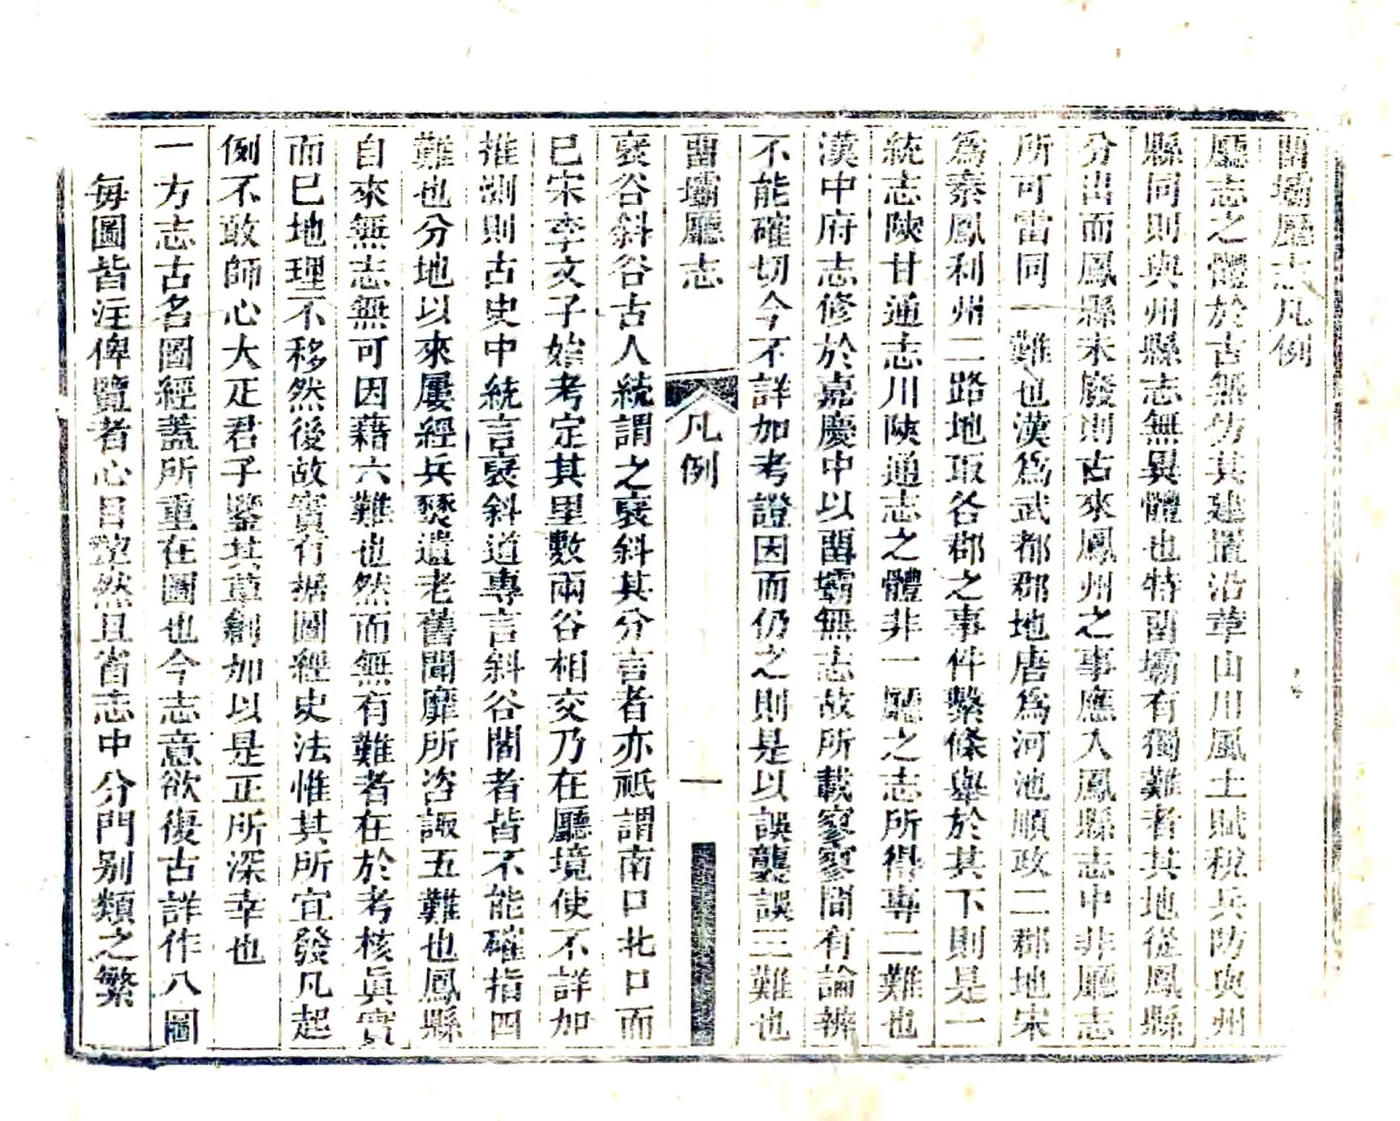 畱壩廳志凡例
廳志之體於古無仿其建置沿革山川風土賦稅兵防與州
縣同則與州縣志無異體也特畱壩有獨難者其地從鳳縣
分出而鳳縣未廢則古來鳳州之事應入鳳縣志中非廳志
所可雷同一難也漢爲武都郡地唐爲河池順政二郡地宋
爲秦鳳利州二路地取各郡之事件繫條舉於其下則是一
統志陝甘通志川陝通志之體非一廳之志所得專二難也
漢中府志修於嘉慶中以畱壩無志故所載寥寥間有論辨
不能確切今不詳加考證因而仍之則是以誤襲誤三難也
畱壩廳志
凡例
一
襃谷斜谷古人統謂之襃斜其分言者亦祇謂南口北口而
已宋李文子始考定其里數兩谷相交乃在廳境使不詳加
推測則古史中統言襃斜道專言斜谷閣者皆不能確指四
難也分地以來屢經兵燹遺老舊聞靡所咨諏五難也鳳縣
自來無志無可因藉六難也然而無有難者在於考核眞實
而已地理不移然後故實有據圖經史法惟其所宜發凡起
例不敢師心大疋君子鑒其草創加以是正所深幸也
一方志古名圖經蓋所重在圖也今志意欲復古詳作八圖
每圖皆注俾覽者心目瞭然且省志中分門别類之繁